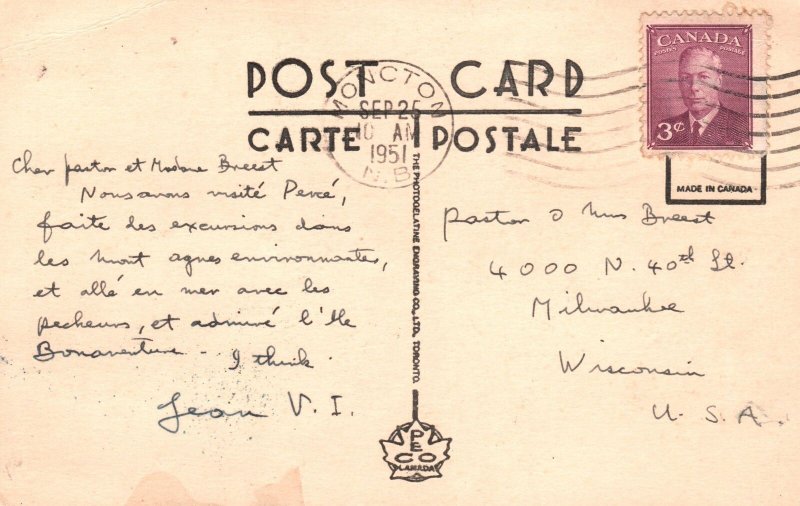 POST CARD
CARTE POSTALE
MONCTON
SEP 25
10 AM
1951
N.B.
CANADA
POSTES POSTAGE
3¢
MADE IN CANADA
Cher pastor et Madame Breest
Nous avons visité Percé,
faite des excursions dans
les mont agnes environnantes,
et allé en mer avec les
pecheurs, et admiré l'Ile
Bonaventure. I think.
Jean V. I.
THE PHOTOGELATINE ENGRAVING CO., LTD., TORONTO.
PECO
CANADA
pastor & Mrs Breest
4000 N. 40th St.
Milwaukee
Wisconsin
U. S. A.